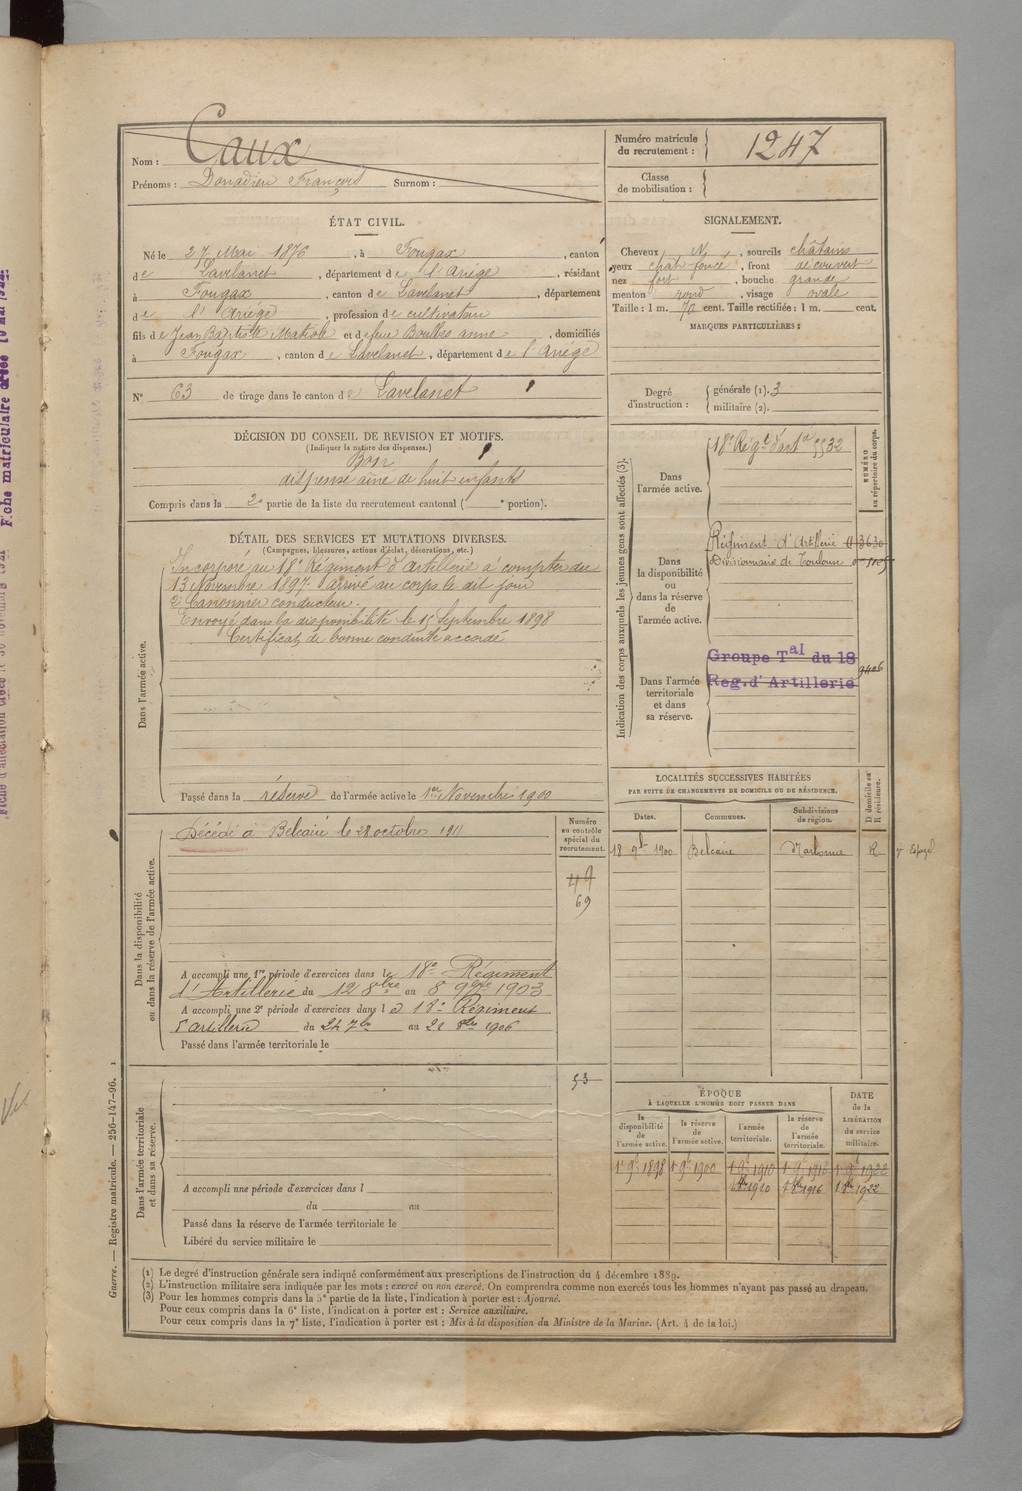 Nom : Caux
Prénoms : Donadieu François Surnom :
Numéro matricule du recrutement : 1247
Classe de mobilisation :
ÉTAT CIVIL.
Né le 27 Mai 1876, à Fougax, canton
de Lavelanet, département de l'Ariége, résidant
à Fougax, canton de Lavelanet, département
de l'Ariége, profession de cultivateur
fils de Jean Baptiste Mathieu et de feue Boulbes anne, domiciliés
à Fougax, canton de Lavelanet, département de l'Ariége
N° 63 de tirage dans le canton de Lavelanet
SIGNALEMENT.
Cheveux N, sourcils châtains
yeux chat foncé, front découvert
nez fort, bouche grande
menton rond, visage ovale
Taille : 1 m. 70 cent. Taille rectifiée : 1 m. cent.
MARQUES PARTICULIÈRES :
Degré d'instruction : générale (1). 3
militaire (2).
DÉCISION DU CONSEIL DE REVISION ET MOTIFS.
(Indiquer la nature des dispenses.)
Bon
dispense aîné de huit enfants
Compris dans la 2e partie de la liste du recrutement cantonal ( e portion).
DÉTAIL DES SERVICES ET MUTATIONS DIVERSES.
(Campagnes, blessures, actions d'éclat, décorations, etc.)
Dans l'armée active.
Incorporé au 18e Régiment d'Artillerie à compter du
13 Novembre 1897 arrivé au corps le dit jour
2e Canonnier conducteur.
Envoyé dans la disponibilité le 15 Septembre 1898
Certificat de bonne conduite accordé
Passé dans la réserve de l'armée active le 1er Novembre 1900
Indication des corps auxquels les jeunes gens sont affectés (3).
NUMÉRO au répertoire du corps.
Dans l'armée active.
18e Régt d'art 5532
Dans la disponibilité ou dans la réserve de l'armée active.
Régiment d'Artillerie
Divisionnaire de Toulouse
Dans l'armée territoriale et dans sa réserve.
Groupe Tal du 18
Reg. d'Artillerie
LOCALITÉS SUCCESSIVES HABITÉES
PAR SUITE DE CHANGEMENTS DE DOMICILE OU DE RÉSIDENCE.
Dates. Communes. Subdivisions de région. D domicile ou R résidence.
18 9bre 1900 Belcaire Narbonne R
Dans la disponibilité ou dans la réserve de l'armée active.
Numéro au contrôle spécial du recrutement.
Décédé à Belcaire le 28 octobre 1911
49
69
A accompli une 1re période d'exercices dans le 18e Régiment
d'Artillerie du 12 8bre au 8 9bre 1903
A accompli une 2e période d'exercices dans le 18e Régiment
d'artillerie du 24 7bre au 21 8bre 1906
Passé dans l'armée territoriale le
Dans l'armée territoriale et dans sa réserve.
53
A accompli une période d'exercices dans l
du au
Passé dans la réserve de l'armée territoriale le
Libéré du service militaire le
ÉPOQUE
À LAQUELLE L'HOMME DOIT PASSER DANS
la disponibilité de l'armée active. la réserve de l'armée active. l'armée territoriale. la réserve de l'armée territoriale.
DATE de la LIBÉRATION du service militaire.
1er 9bre 1898 1er 9bre 1900 1er 9bre 1910 1er 9bre 1916 1er 9bre 1922
1er 8bre 1910 1er 8bre 1916 1er 8bre 1922
(1) Le degré d'instruction générale sera indiqué conformément aux prescriptions de l'instruction du 4 décembre 1889.
(2) L'instruction militaire sera indiquée par les mots : exercé ou non exercé. On comprendra comme non exercés tous les hommes n'ayant pas passé au drapeau.
(3) Pour les hommes compris dans la 5e partie de la liste, l'indication à porter est : Ajourné.
Pour ceux compris dans la 6e liste, l'indication à porter est : Service auxiliaire.
Pour ceux compris dans la 7e liste, l'indication à porter est : Mis à la disposition du Ministre de la Marine. (Art. 4 de la loi.)
Guerre. — Registre matricule. — 256-147-96.
Fiche matriculaire